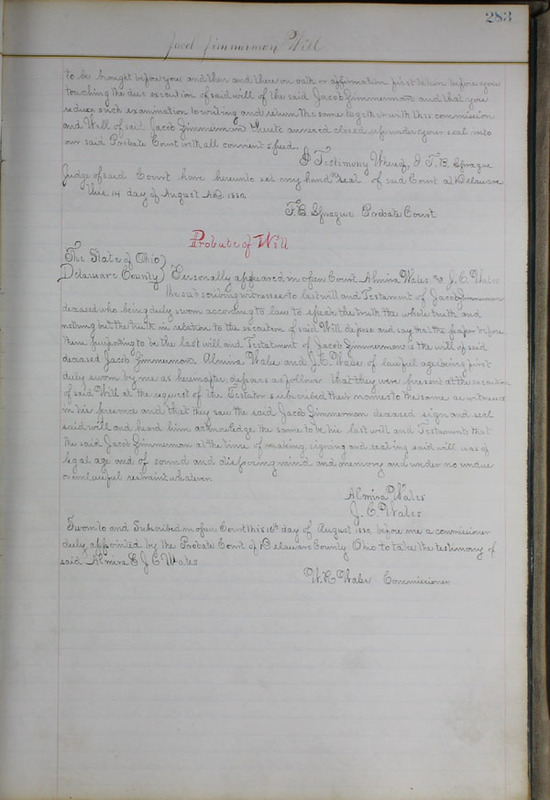 283
Jacob Zimmerman Will
to be brought before you and then and there on oath or affirmation first taken before you
touching the due execution of said will of the said Jacob Zimmerman and that you
reduce such examination to writing and return the same together with this commission
and Will of said Jacob Zimmerman thereto annexed closed up under your seal into
our said Probate Court with all convenient speed.
In Testimony Whereof, I F. B. Sprague
Judge of said Court have hereunto set my hand & seal of said Court at Delaware
this 14 day of August AD. 1880.
F. B. Sprague Probate Court
Probate of Will
The State of Ohio
Delaware County } Personally appeared in open Court Almira Wales & J. C. Wales
the subscribing witnesses to last will and Testament of Jacob Zimmerman
deceased who being duly sworn according to law to speak the truth the whole truth and
nothing but the truth in relation to the execution of said Will depose and say that the paper before
them purporting to be the last will and Testatment of Jacob Zimmerman is the will of said
deceased Jacob Zimmerman. Almira Wales and J. C. Wales of lawful age being first
duly sworn by me as hereinafter deposes as follows that they were present at the execution
of said Will at the request of the Testator subscribed their names to the same as witnesses
in his presence and that they saw the said Jacob Zimmerman deceased sign and seal
said will and heard him acknowledge the same to be his last will and Testament & that
the said Jacob Zimmerman at the time of making, signing and sealing said will was of
legal age and of sound and disposing mind and memory and under no undue
or unlawful restraint whatever
Almira Wales
J. C. Wales
Sworn to and Subscribed in open Court this 16th day of August 1880 before me a commissioner
duly appointed by the Probate Court of Delaware County Ohio to take the testimony of
said Almira & J C Wales
Wales Commissioner